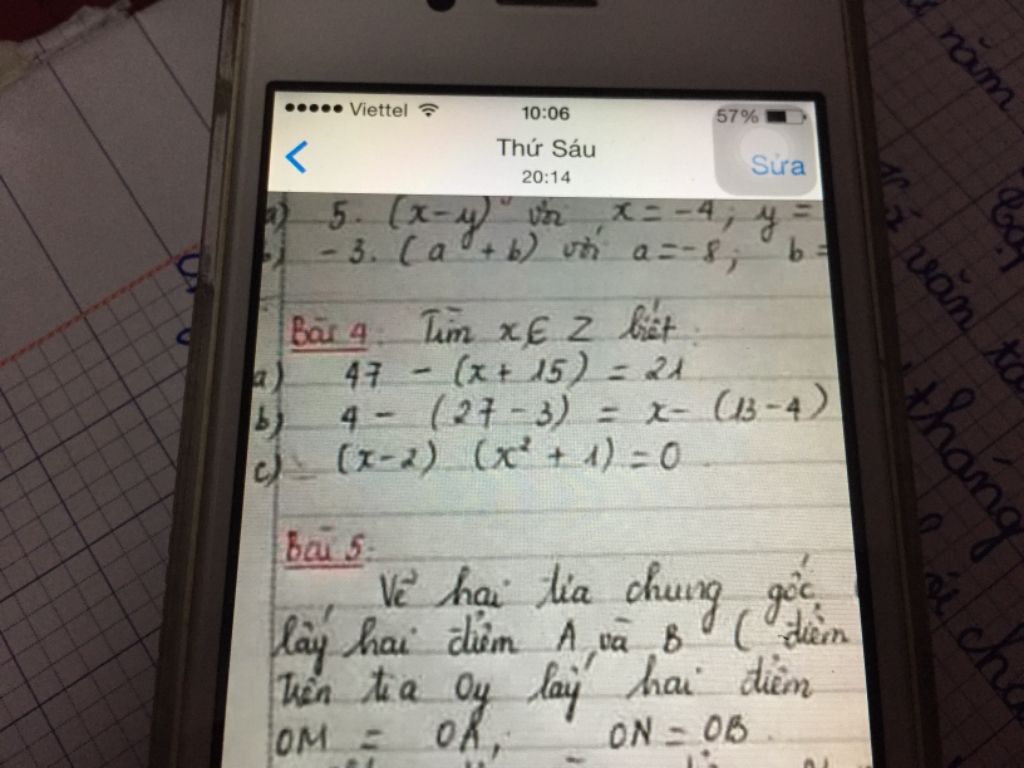 Viettel 10:06 57%
Thứ Sáu
20:14
Sửa
a) 5. (x-y) với x = -4; y =
b) -3. (a + b) với a = -8; b =
Bài 4: Tìm x ∈ Z biết:
a) 47 - (x + 15) = 21
b) 4 - (27 - 3) = x - (13 - 4)
c) (x-2) (x² + 1) = 0
Bài 5:
Vẽ hai tia chung gốc
lấy hai điểm A và B ( điểm
trên tia Oy lấy hai điểm
OM = OA, ON = OB.
năm
văn
tháng